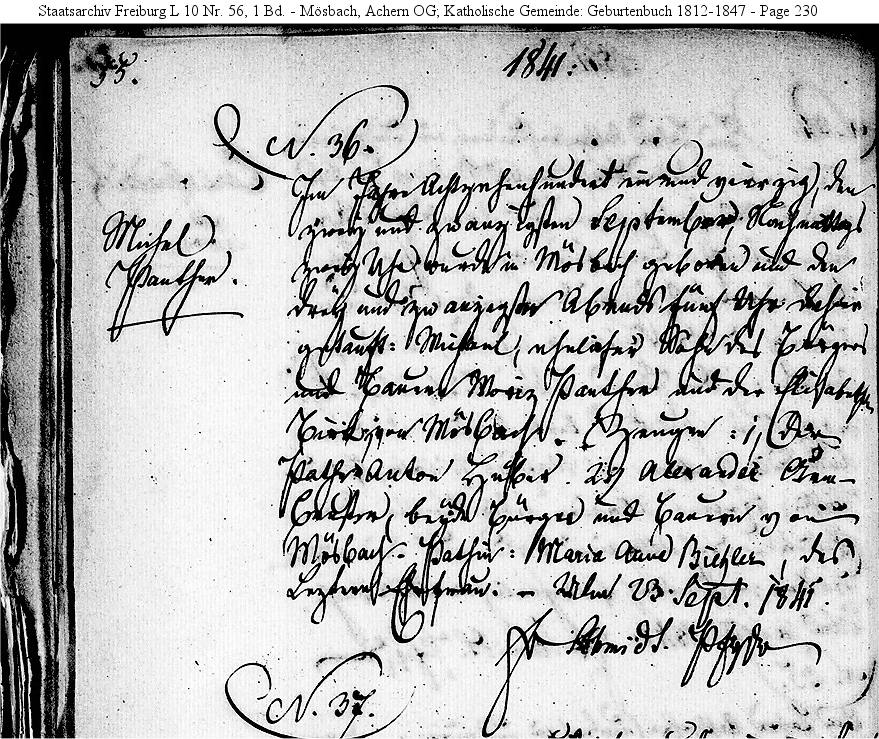 Staatsarchiv Freiburg L 10 Nr. 56, 1 Bd. - Mösbach, Achern OG; Katholische Gemeinde: Geburtenbuch 1812-1847 - Page 230
1841.
N. 36.
Im Jahre Achtzehenhundert ein und vierzig, den
zwey und zwanzigsten September, Nachmittags
Michel
zwey Uhr wurde in Mösbach geboren und den
Panther.
drey und zwanzigsten Abends fünf Uhr dahier
getauft: Michael, ehelicher Sohn des Bürgers
und Bauern Moriz Panther und der Elisabetha
von Mösbach. Zeugen: 1, Der
Pathe Anton Huber. 2, Alexander Arm-
bruster, beyde Bürger und Bauern von
Mösbach. Pathin: Maria Anna Biehler, des
Leztern Ehefrau. - Ulm 23. Sept. 1841.
Schmidt.
N. 37.